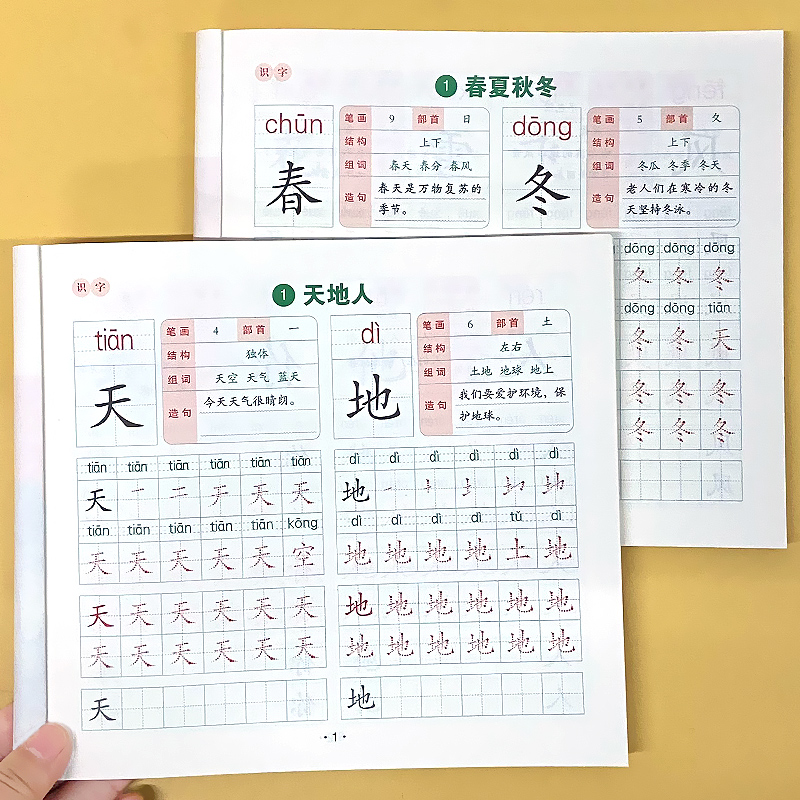 识字
1 春夏秋冬
chūn
春
笔画 9 部首 日
结构 上下
组词 春天 春分 春风
造句 春天是万物复苏的
季节。
dōng
冬
笔画 5 部首 夂
结构 上下
组词 冬瓜 冬季 冬天
造句 老人们在寒冷的冬
天坚持冬泳。
dōng dōng dōng
冬 冬 冬
dōng dōng tiān
冬 冬 天
冬 冬 冬
冬 冬 冬
识字
1 天地人
tiān
天
笔画 4 部首 一
结构 独体
组词 天空 天气 蓝天
造句 今天天气很晴朗。
dì
地
笔画 6 部首 土
结构 左右
组词 土地 地球 地上
造句 我们要爱护环境,保
护地球。
tiān tiān tiān tiān tiān tiān
天 一 二 于 天 天
tiān tiān tiān tiān tiān kōng
天 天 天 天 天 空
天 天 天 天 天 天
天 天 天 天 天 天
天
dì dì dì dì dì dì
地
dì dì dì dì tǔ dì
地 地 地 地 土 地
地 地 地 地 地 地
地 地 地 地 地 地
地
·1·